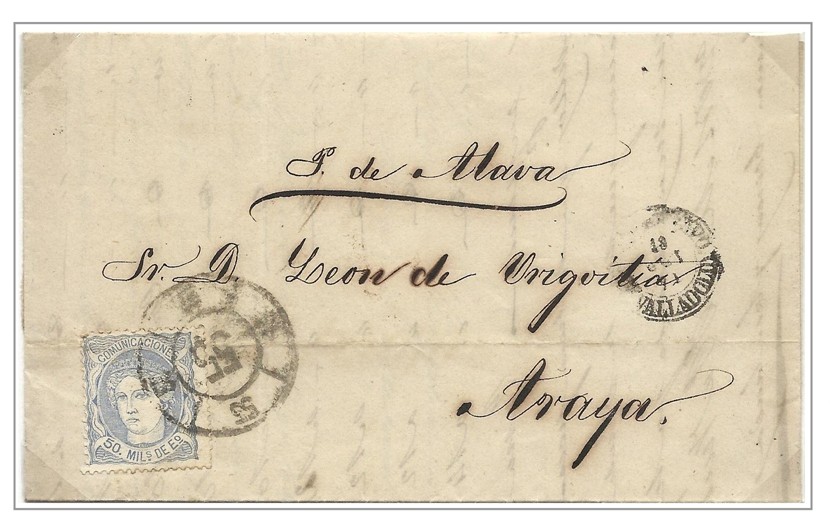 P. de Alava
Sr. D. Leon de Urigoitia
Araya.
19
VALLADOLID
COMUNICACIONES
50. MILS DE Eº